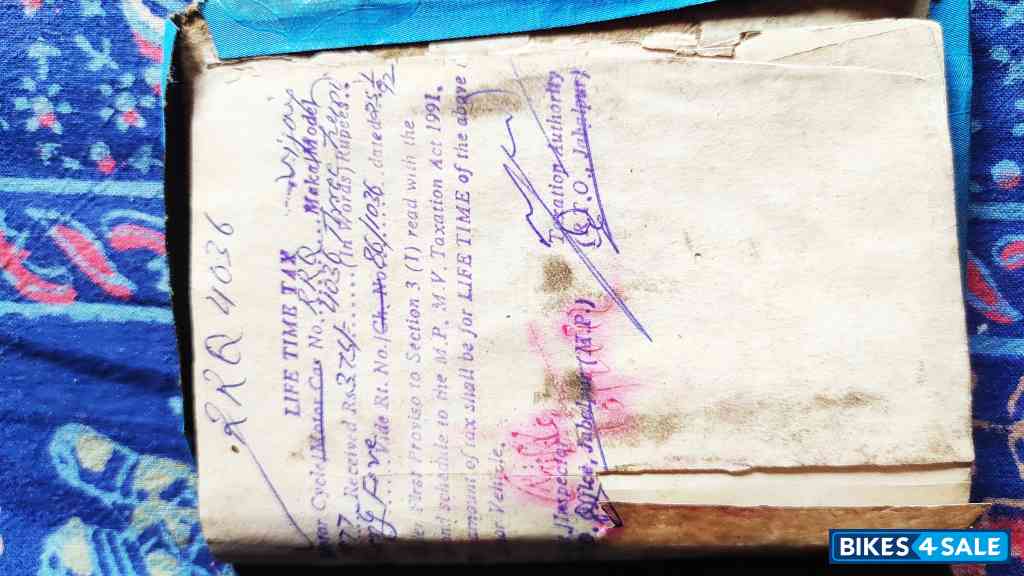 RRQ 4036
LIFE TIME TAX
Cycle/Motor Car No. RRQ 4036 Make/Model Vijai
Received Rs. 375/- (in words) Rupees Three
Five Vide Rt. No./Ch. No. 86/1036 dated
First Proviso to Section 3 (1) read with the
schedule to the M.P. M.V. Taxation Act 1991.
amount of tax shall be for LIFE TIME of the above
or Vehicle.
Taxation Authority
R.T.O. Jabalpur
Inspector
Office, Jabalpur (M.P.)
BIKES4SALE